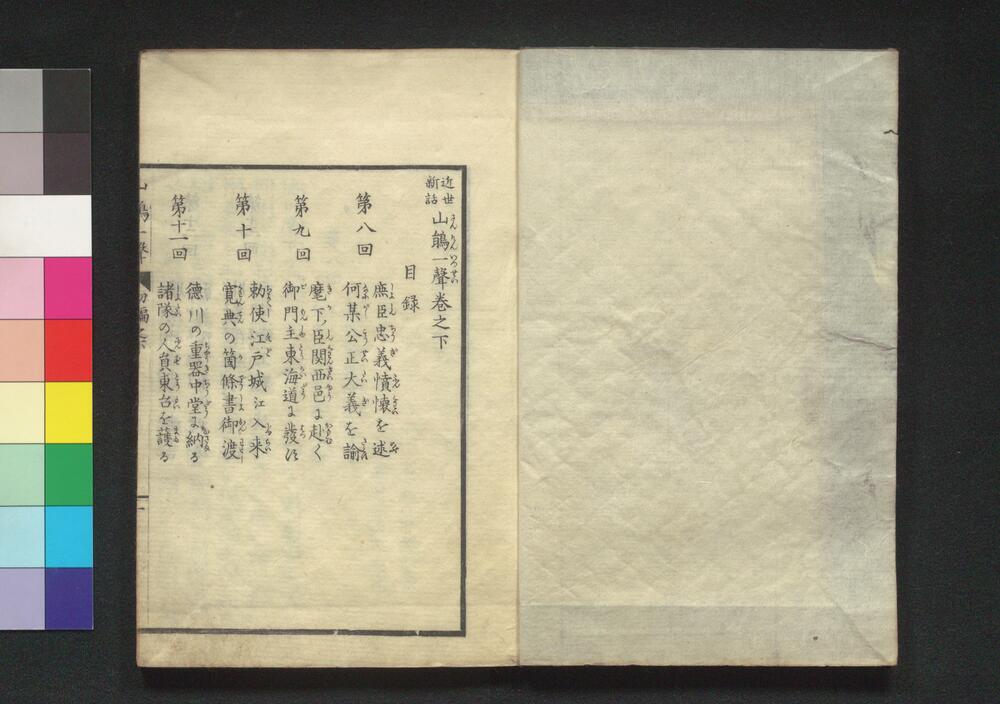 近世新話 山鵑一聲巻之下
目録
第八回
庶臣忠義憤懐を述
何某公正大義を諭
第九回
麾下臣関西邑に赴く
御門主東海道に發す
第十回
勅使江戸城江入来
寛典の箇條書御渡
第十一回
徳川の重器中堂に納る
諸隊の人員東台を護る